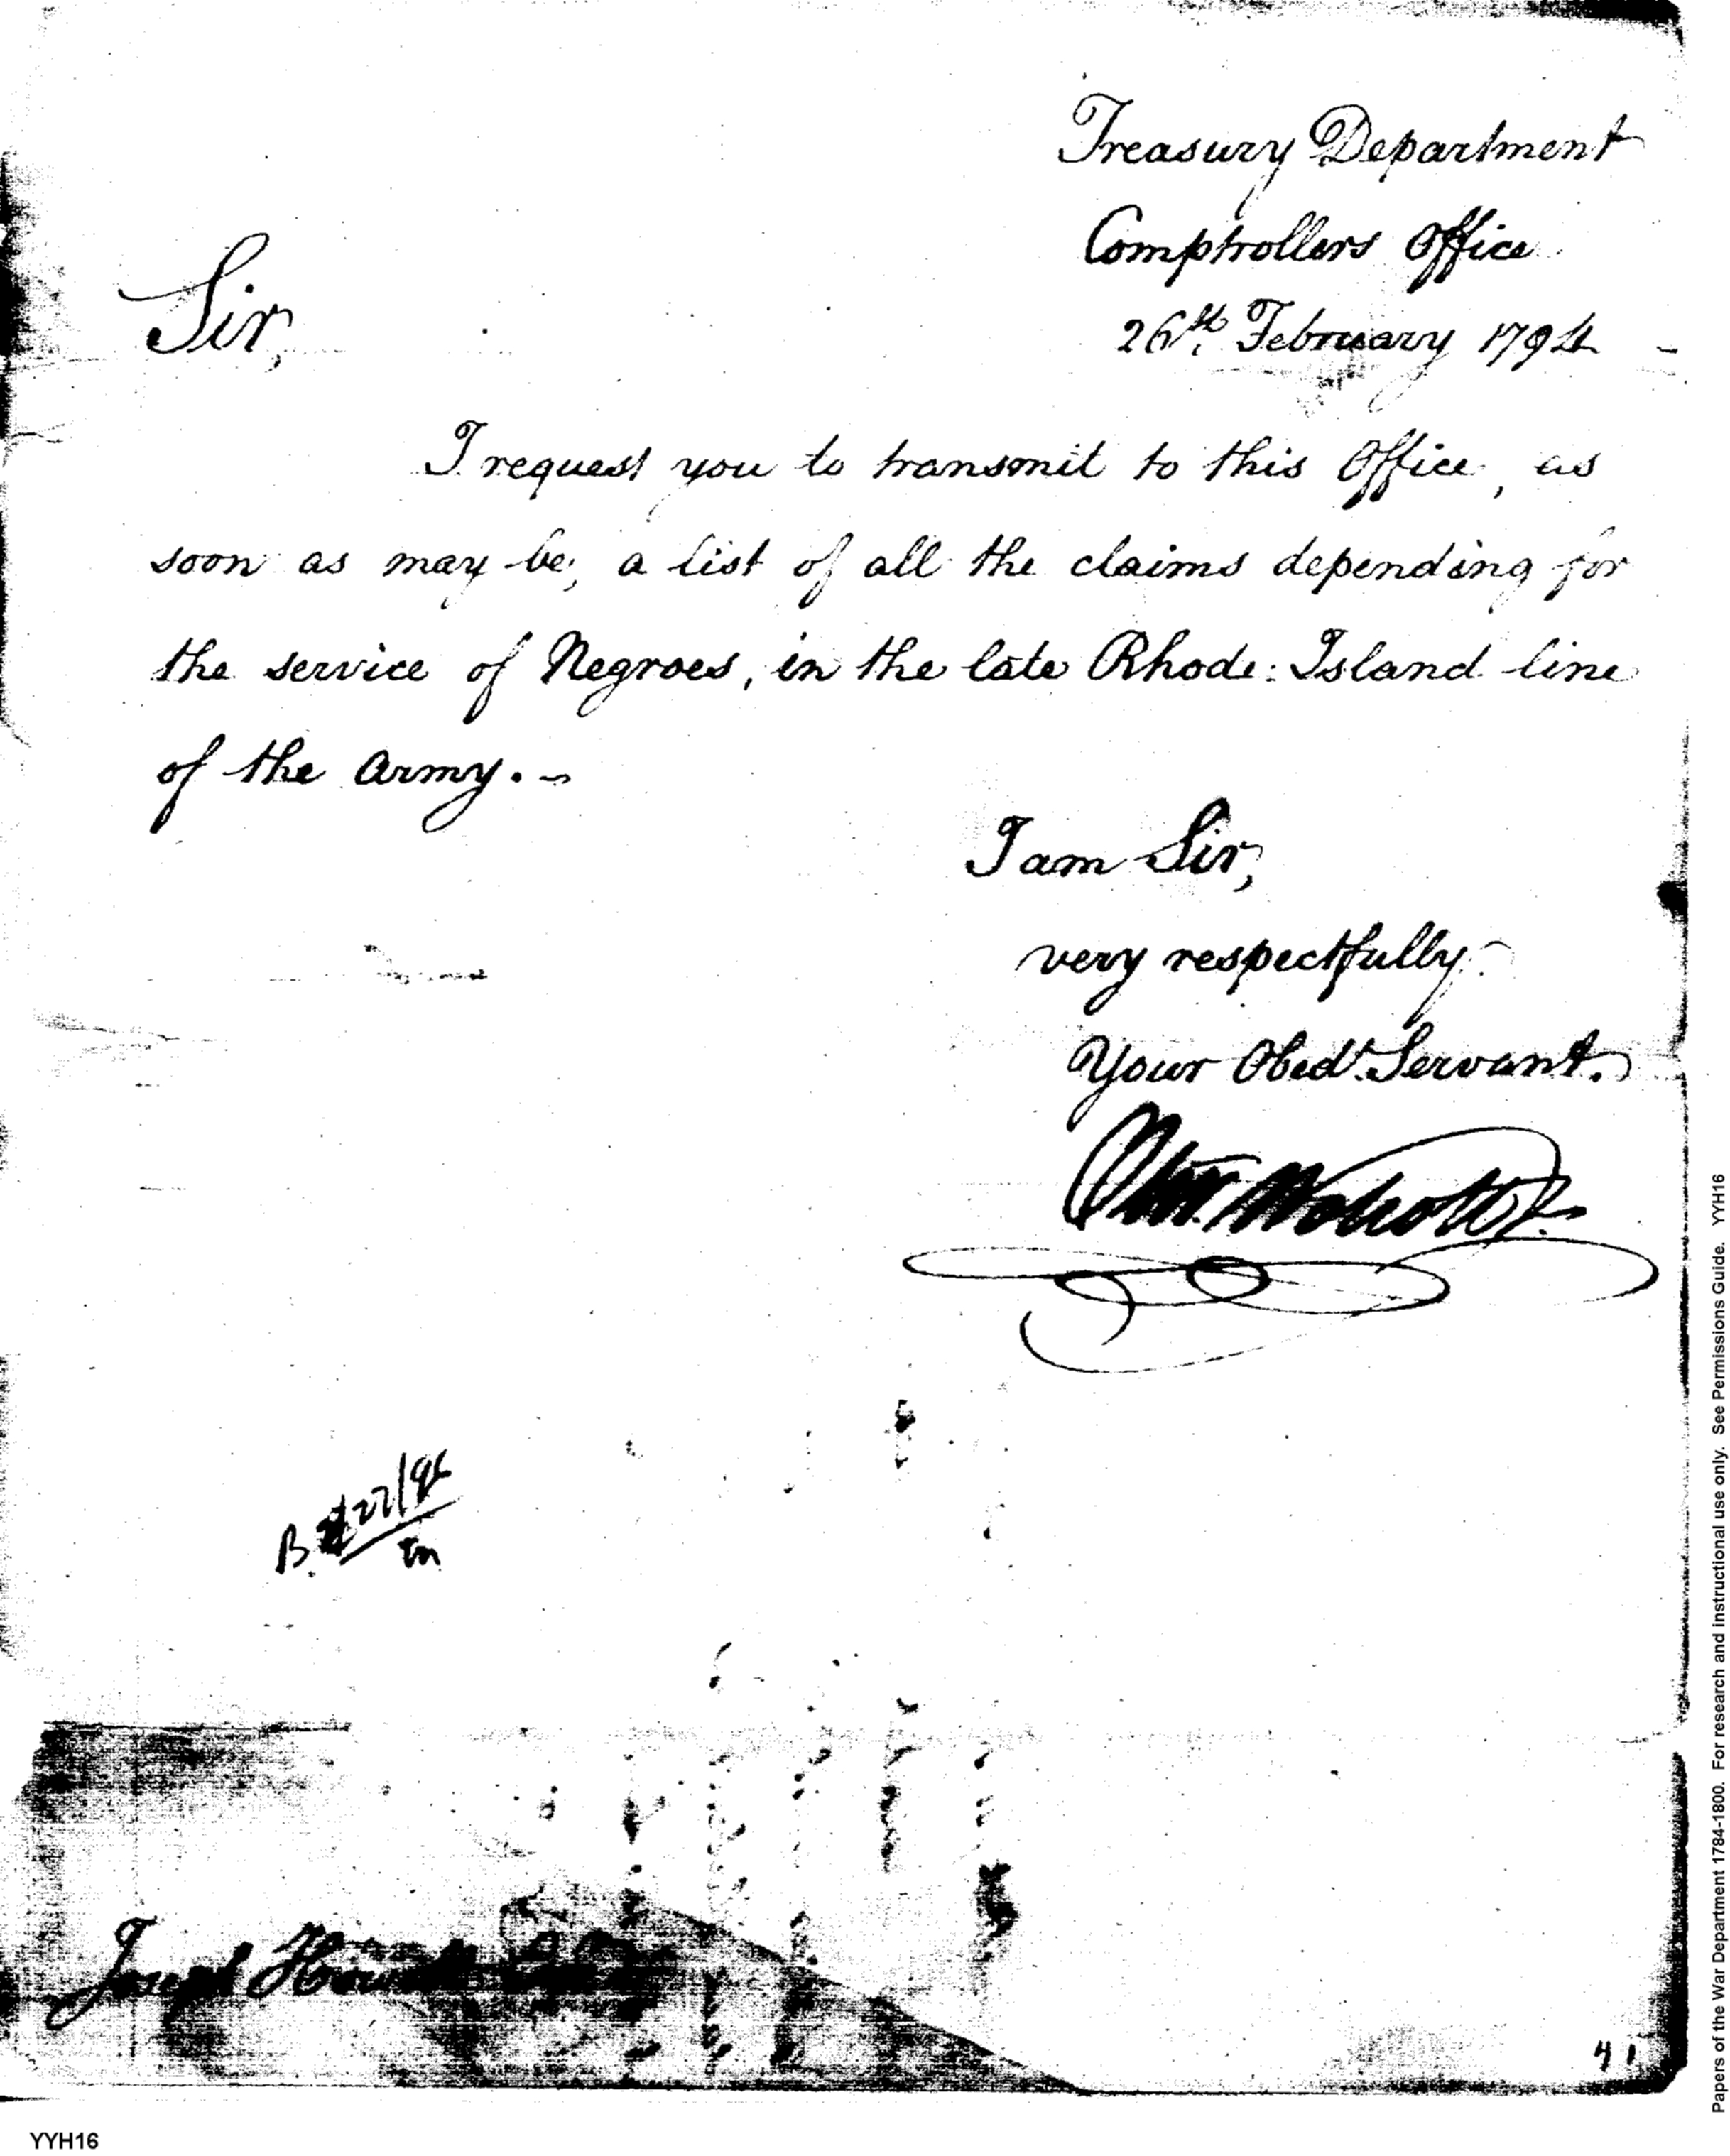 Treasury Department
Comptrollers Office
26th. February 1794
Sir,
I request you to transmit to this Office, as
soon as may be, a list of all the claims depending for
the service of Negroes, in the late Rhode: Island line
of the Army. -
I am Sir,
very respectfully
Your Obedt. Servant.
Oliv. Wolcott Jr.
B. 22/96
Joseph Howell
41
YYH16
Papers of the War Department 1784-1800. For research and instructional use only. See Permissions Guide. YYH16